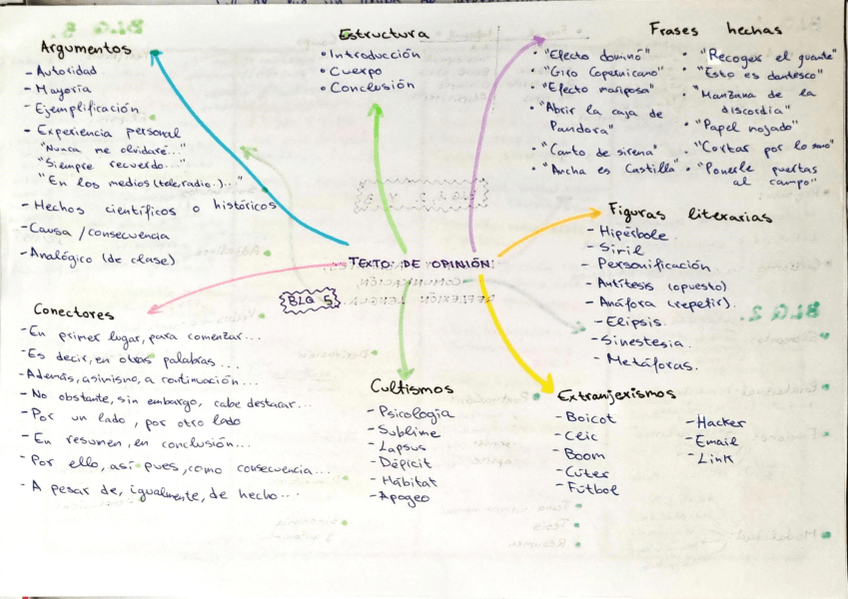 Argumentos
- Autoridad
- Mayoría
- Ejemplificación
- Experiencia personal
"Nunca me olvidaré..."
"Siempre recuerdo..."
"En los medios (tele, radio..)..."
- Hechos científicos o históricos
- Causa / consecuencia
- Analógico (de clase)
Estructura
• Introducción
• Cuerpo
• Conclusión
Frases hechas
• "Efecto dominó"
• "Giro Copernicano"
• "Efecto mariposa"
• "Abrir la caja de
Pandora"
• "Canto de sirena"
• "Ancha es Castilla"
• "Recoger el guante"
• "Esto es dantesco"
• "Manzana de la
discordia"
• "Papel mojado"
• "Cortar por lo sano"
• "Ponerle puertas
al campo"
Figuras literarias
- Hipérbole
- Símil
- Personificación
- Antítesis (opuesto)
- Anáfora (repetir).
- Elipsis.
- Sinestesia.
- Metáforas.
TEXTO DE OPINIÓN
BLQ 5
Conectores
- En primer lugar, para comenzar...
- Es decir, en otras palabras...
- Además, asimismo, a continuación...
- No obstante, sin embargo, cabe destacar...
- Por un lado, por otro lado
- En resumen, en conclusión...
- Por ello, así pues, como consecuencia...
- A pesar de, igualmente, de hecho...
Cultismos
- Psicología
- Sublime
- Lapsus
- Déficit
- Hábitat
- Apogeo
Extranjerismos
- Boicot
- Clic
- Boom
- Cúter
- Fútbol
- Hacker
- Email
- Link